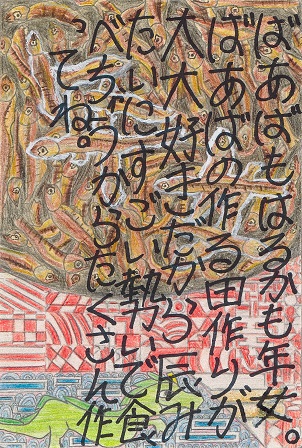 ばあばもはるかも年女。
ばあばの作る田作りが
大大好きだから辰み
たいにすごい勢いで食
べちゃうからたくさん作
ってね。